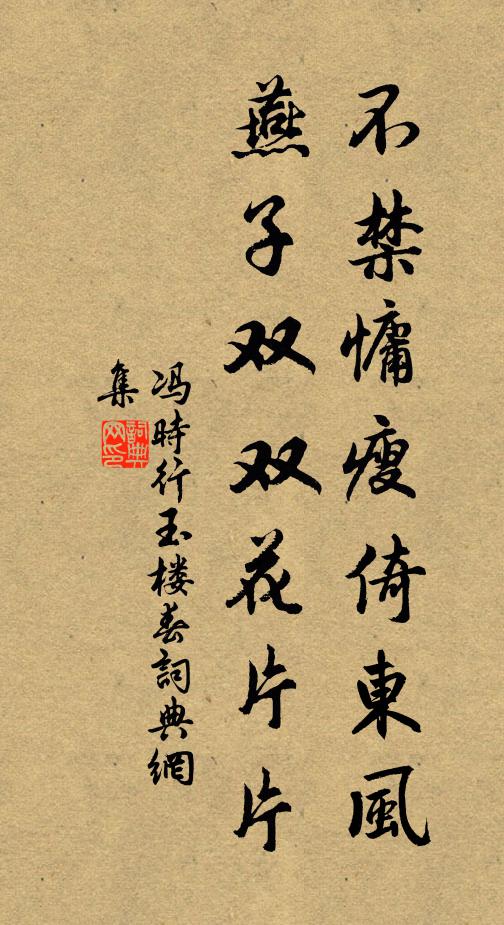 不禁慵瘦倚東風
燕子双双花片片
冯時行玉楼春詞典網
集
詞典网印